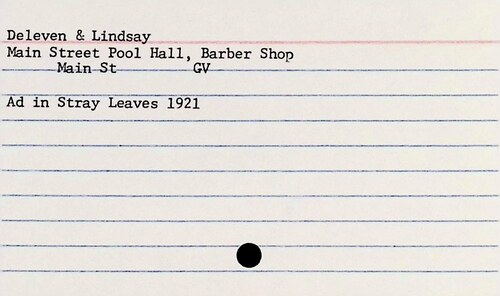 Deleven & Lindsay
Main Street Pool Hall, Barber Shop
Main St GV
Ad in Stray Leaves 1921